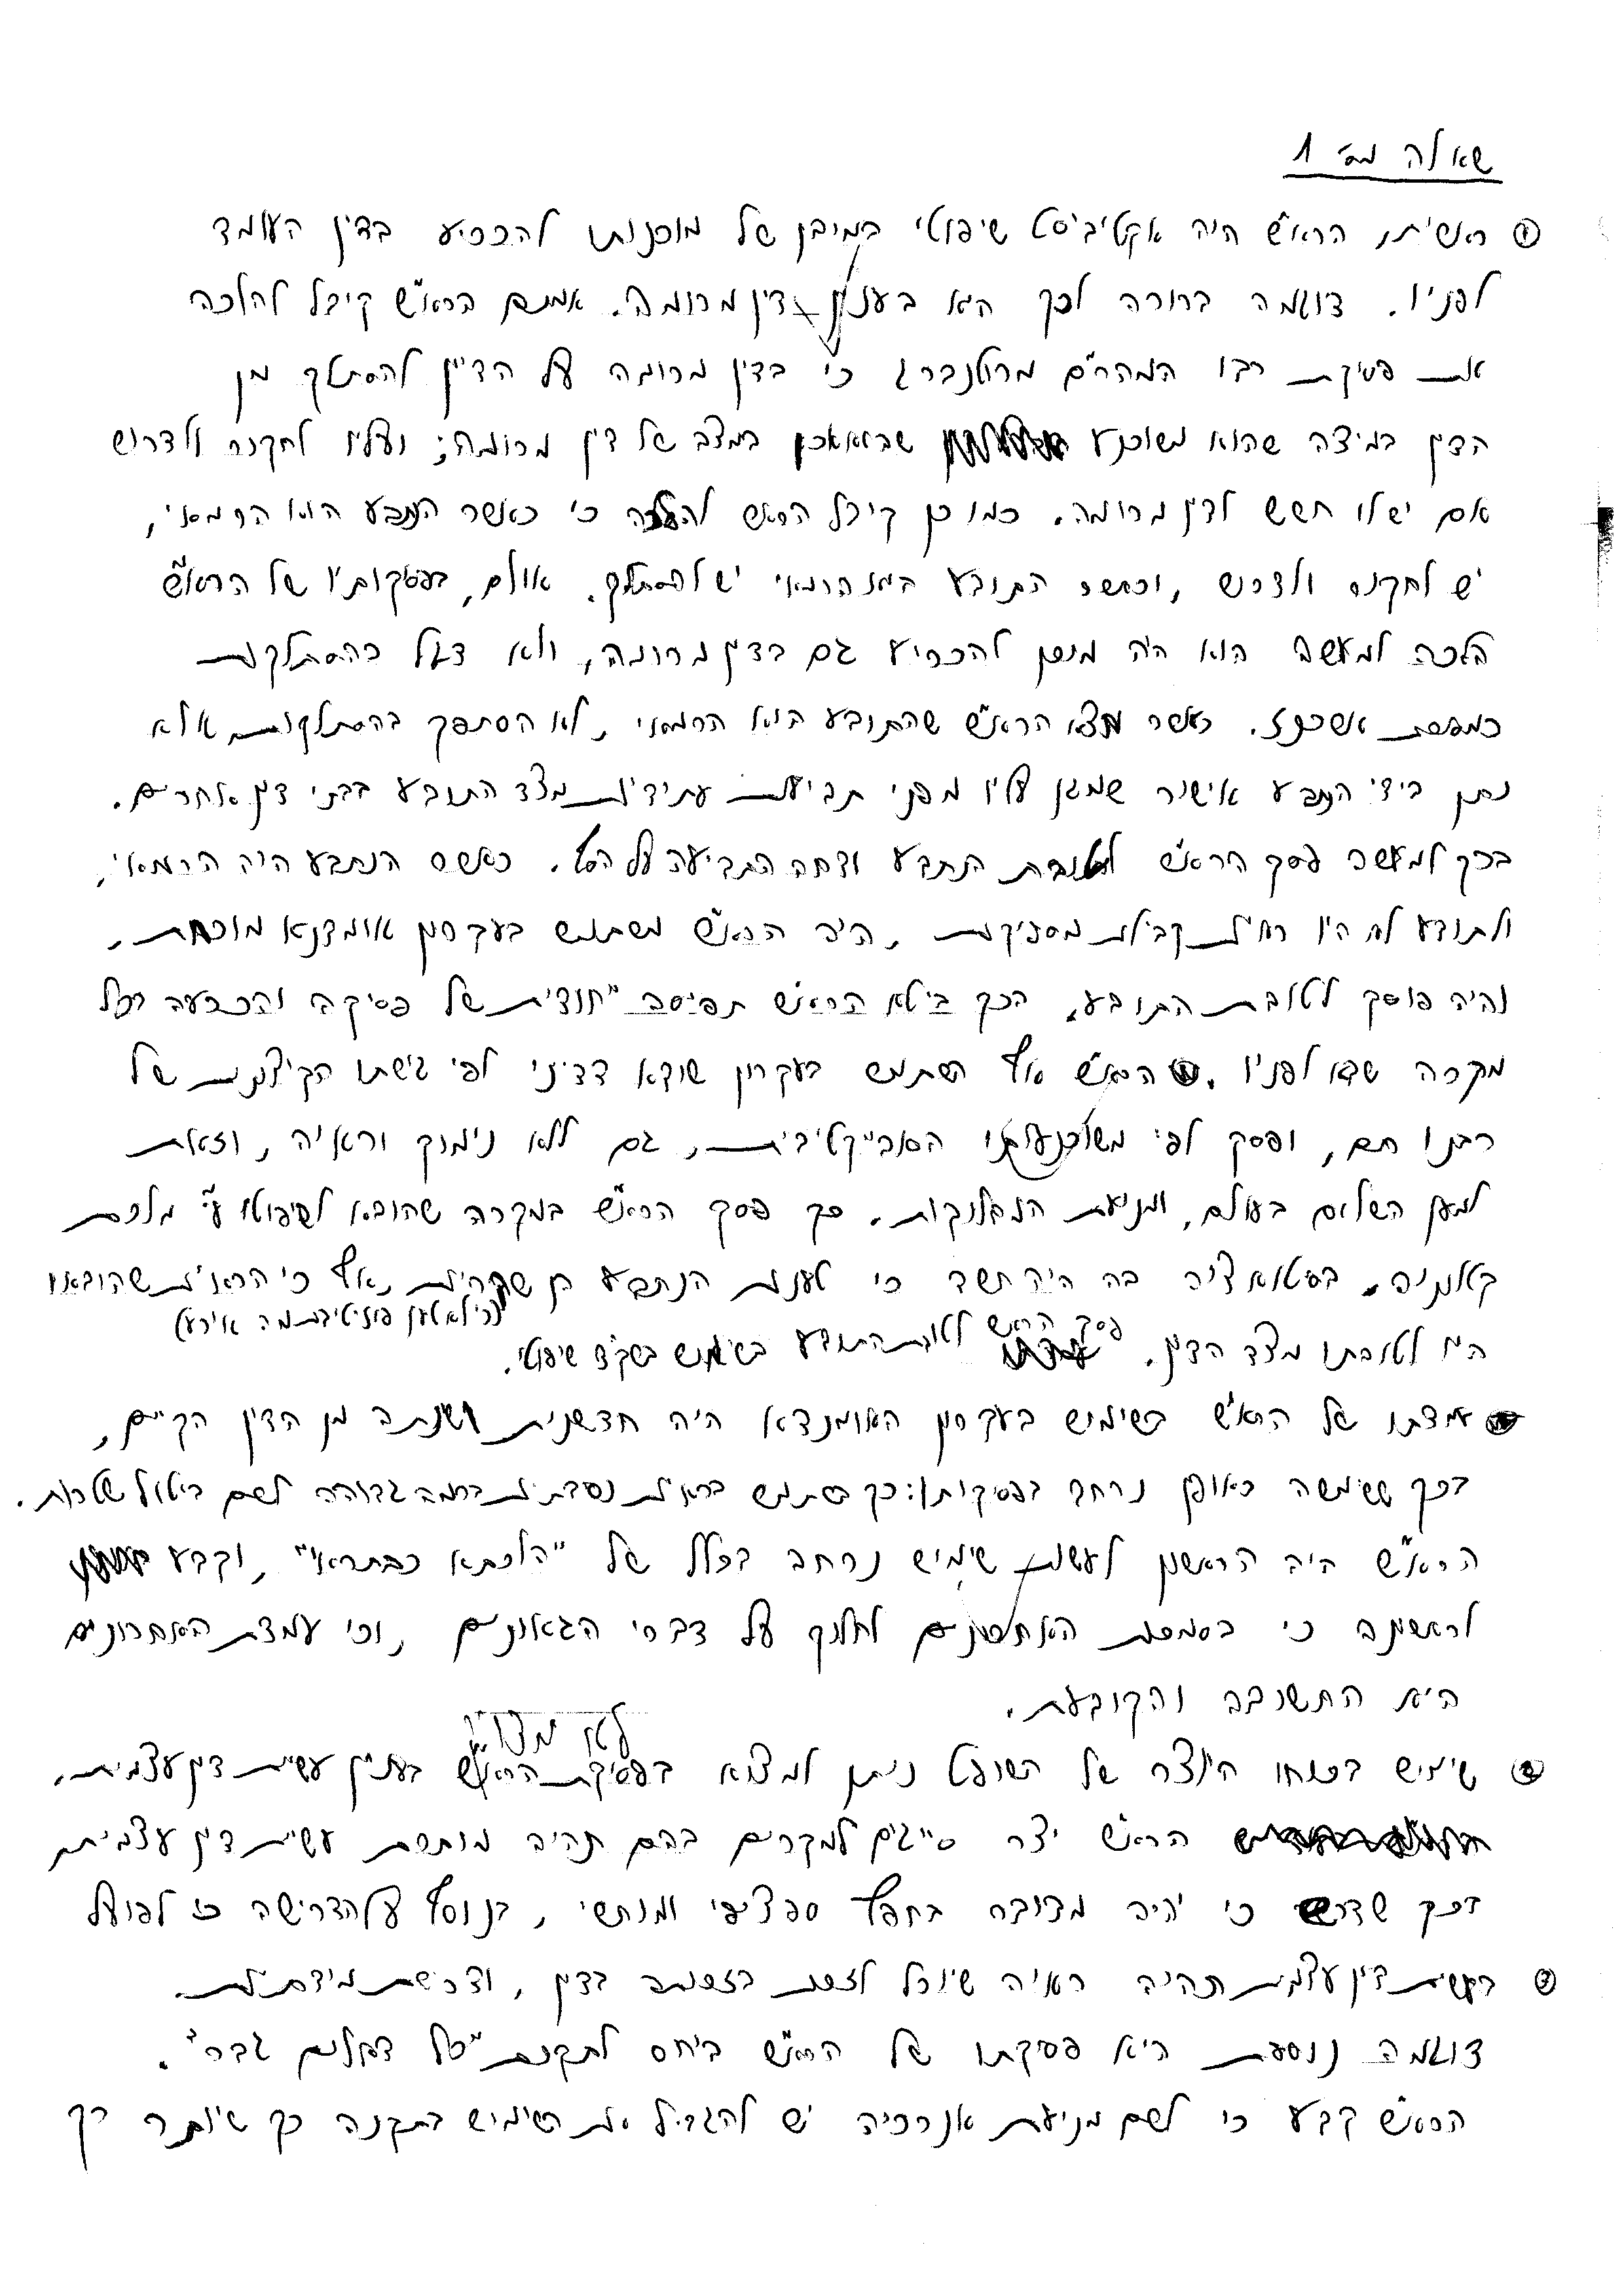 שאלה מס' 1
① ראשית, הרא"ש היה אקטיביסט שיפוטי במובן של מוכנותו להכריע בדין העומד
לפניו. דוגמה ברורה לכך היא בעניין דין מרומה. אמנם הרא"ש קיבל להלכה
את פסיקת רבו המהר"ם מרוטנברג כי בדין מרומה על הדיין להסתלק מן
הדין במידה שהוא משוכנע שבמצב של דין מרומה; ועליו לחקור ולדרוש
אם יש לו חשש לדין מרומה. כמו כן קיבל הראש להלכה כי כאשר הנתבע הוא הרמאי,
יש לחקור ולדרוש, וכאשר התובע הוא הרמאי יש להסתלק. אולם, בפסקותיו של הרא"ש
הלכה למעשה הוא היה מוכן להכריע גם בדין מרומה, ולא דגל בהסתלקות
כמפסקת אשכנז. כאשר מצא הרא"ש שהתובע הוא הרמאי, לא הסתפק בהסתלקות אלא
נתן בידי הנתבע אישור שמגן עליו מפני תביעות עתידיות מצד התובע בבתי דין אחרים.
בכך למעשה פסק הרא"ש לטובת הנתבע ודחה התביעה על הסף. כאשר הנתבע היה הרמאי,
ולתובע לא היו ראיות קבילות מספיקות, היה הרא"ש משתמש בעקרון אומדנא מוכחת,
והיה פוסק לטובת התובע. בכך ביטא הרא"ש תפיסה ייחודית של פסיקה והכרעה בכל
מקרה שבא לפניו. הרא"ש אף השתמש בעקרון שודא דדייני לפי גישתו הקיצונית של
רבנו תם, ופסק לפי משוכנעותו הסובייקטיבית, גם ללא נימוק וראיה, וזאת
למען השלום בעולם, ומניעת המחלוקות. כך פסק הרא"ש במקרה שהובא לשיפוטו ע"י מלכת
קאלוניה. בסיטואציה בה היה חשד כי טענות הנתבע הן שקריות, אף כי הראיות שהובאו
(כי לא טען פוזיטיבית מה אירע)
היו לטובתו מצד הדין. פסק הראש לטובת התובע בשימוש בשק"ד שיפוטי.
עמדתו של הרא"ש בשימוש בעקרון האומדנא היה חדשנית ושונה מן הדין הקיים,
בכך ששימשה באופן נרחב בפסיקותיו: כך השתמש בראיות נסיבתיות ברמה גבוהה לשם ביטול שטרות.
הרא"ש היה הראשון לעשות שימוש נרחב בכלל של "הלכתא כבתראי", וקבע
לראשונה כי בסמכות האחרונים לחלוק על דברי הגאונים, וכי עמדת האחרונים
היא החשובה והקובעת.
לא מצוי
② שימוש בכוחו היוצר של השופט ניתן למצוא בפסיקת הרא"ש בעניין עשיית דין עצמית.
הרא"ש יצר סייגים למקרים בהם תהיה מותרת עשיית דין עצמית
בכך שדרש כי יהיה מדובר בחפץ ספציפי ומוחשי, בנוסף על הדרישה כי לפועל
③ בעשיית דין עצמית תהיה ראיה שיוכל לזכות בזכותה בדין, ודרישת מידתיות.
דוגמה נוספת היא פסיקתו של הרא"ש ביחס לתקנת "כל דאלים גבר".
הרא"ש קבע כי לשם מניעת אנרכיה יש להגביל את השימוש בתקנה כך שיותר רק